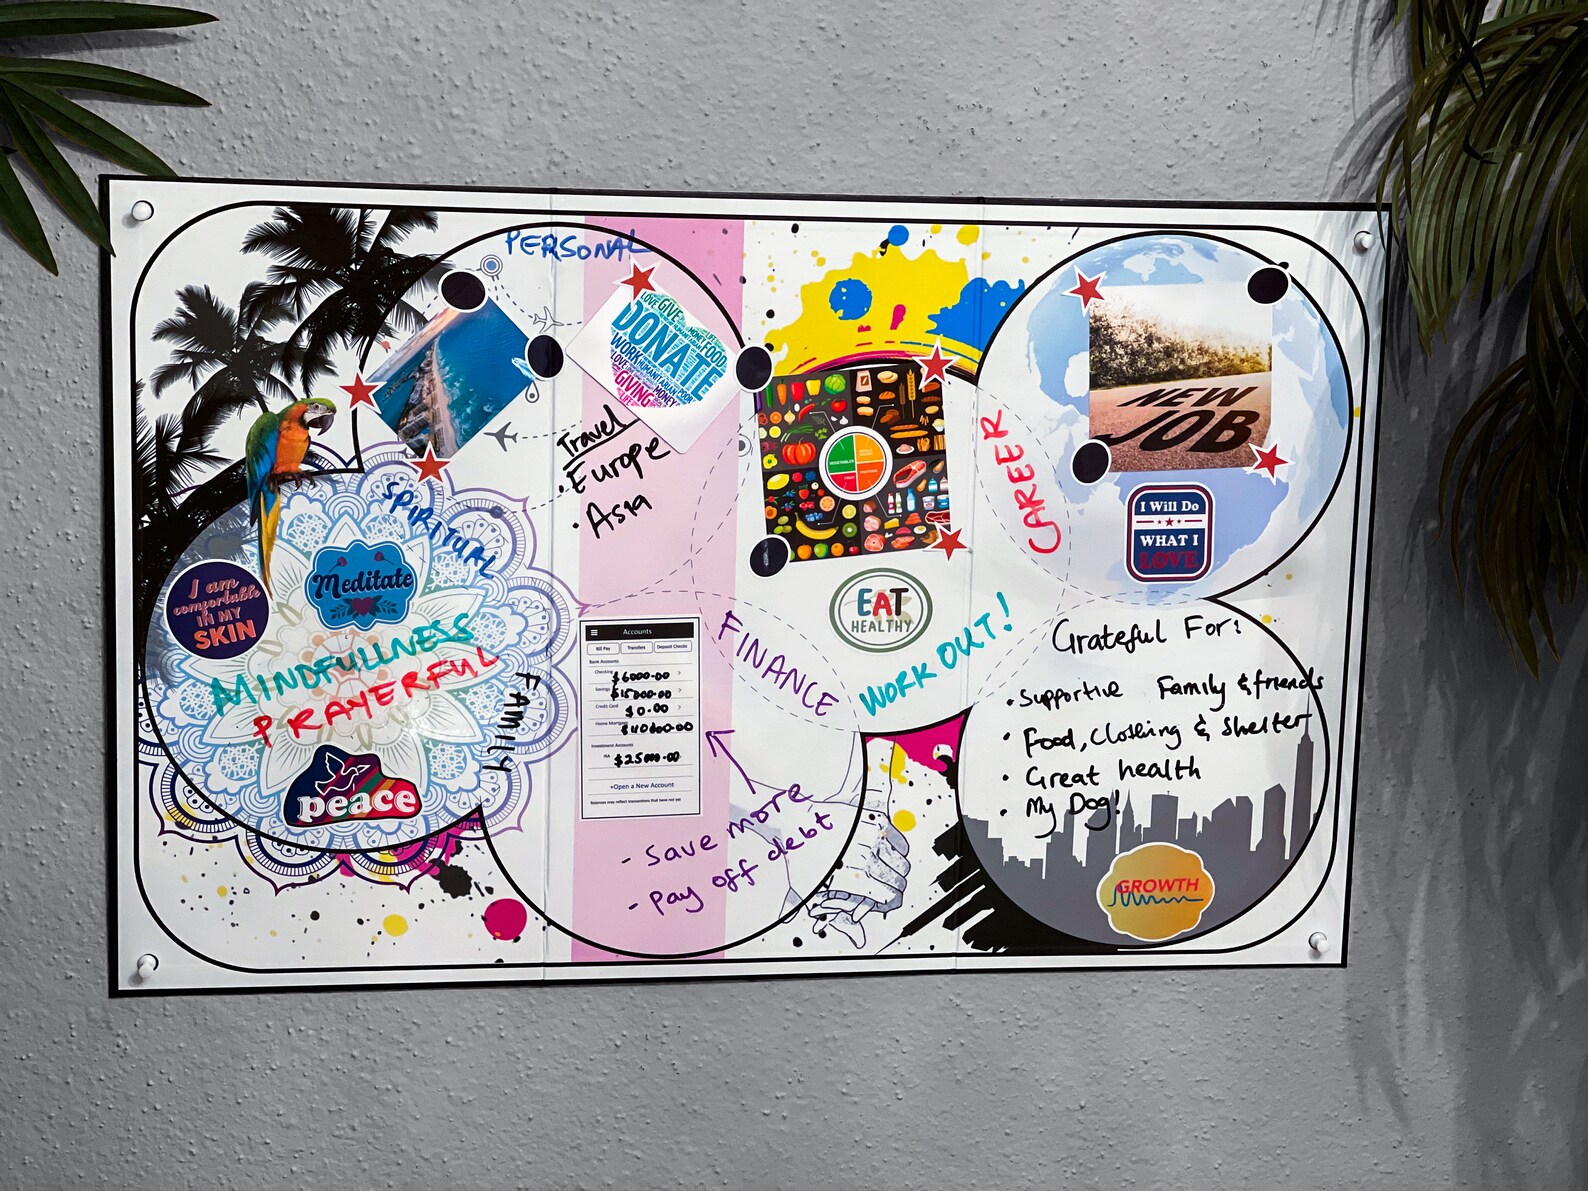 PERSONAL
LOVE GIVE
DONATE
FOOD
WORK
GIVING
MONEY
Travel
. Europe
. Asia
SPIRITUAL
I am
comfortable
IN MY
SKIN
Meditate
MINDFULLNESS
PRAYERFUL
peace
FAMILY
Accounts
Bill Pay
Transfers
Deposit Checks
Bank Accounts
Checking
$6000.00
Savings
$15000.00
Credit Card
$0.00
Home Mortgage
$40000.00
Investment Accounts
IRA
$25000.00
+Open a New Account
Balances may reflect transactions that have not yet
FINANCE
- Save more
- Pay off debt
EAT
HEALTHY
WORK OUT!
CAREER
NEW
JOB
I Will Do
WHAT I
LOVE
Grateful For:
• Supportive Family & friends
• Food, Clothing & Shelter
• Great health
• My Dog!
GROWTH